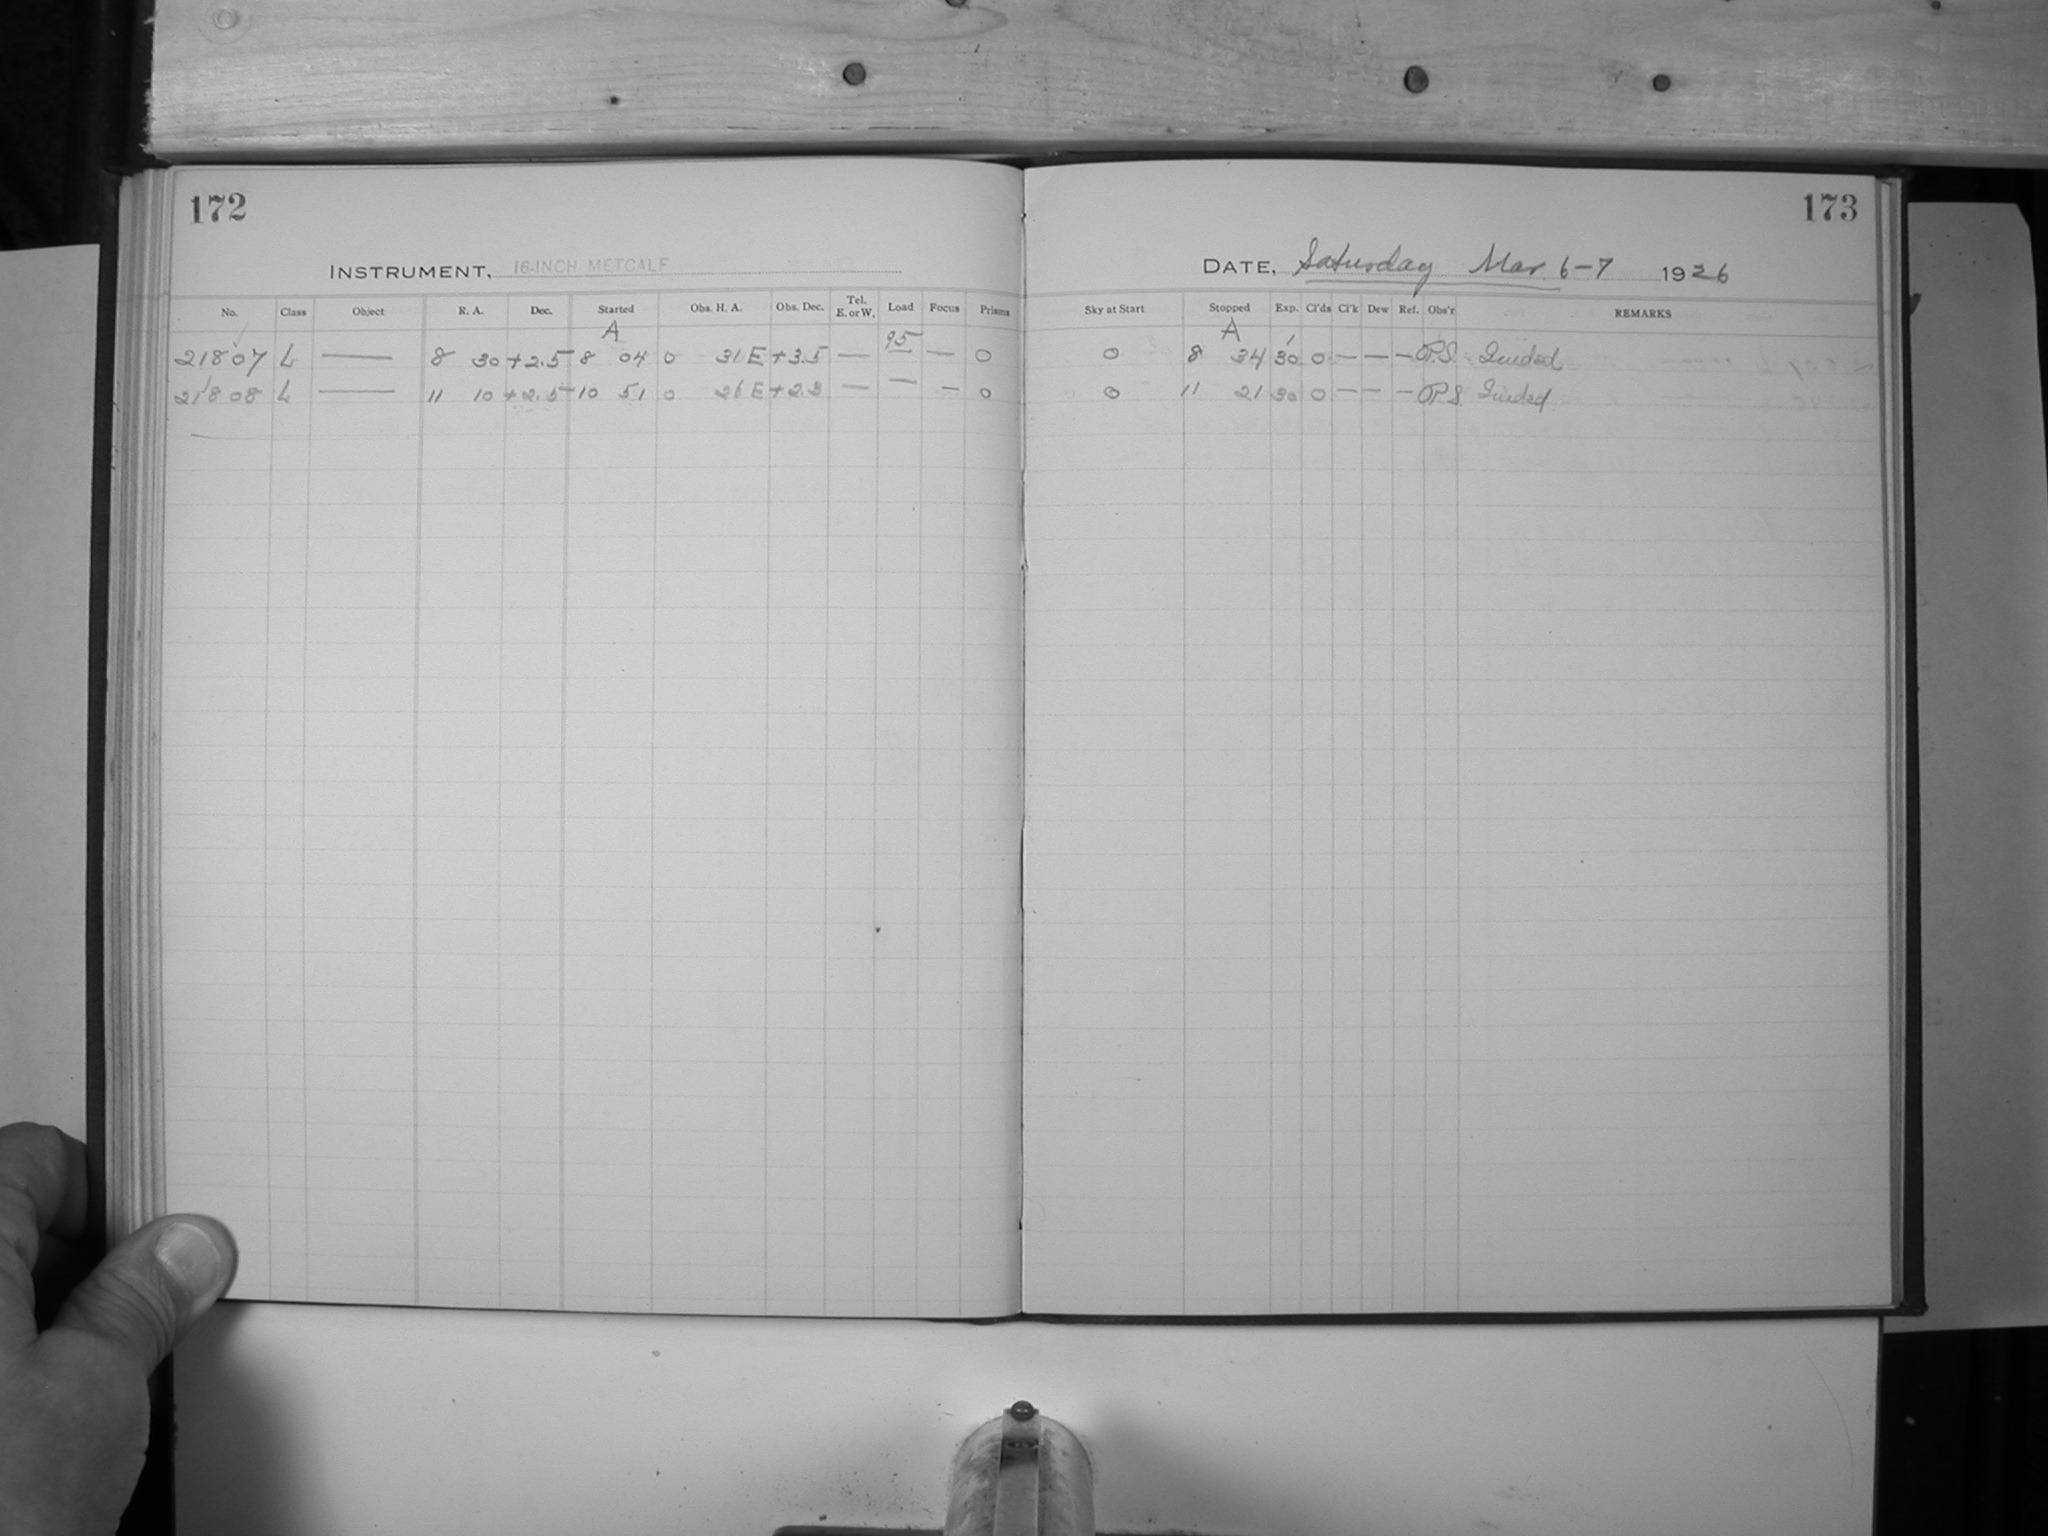 172
INSTRUMENT, 16-INCH METCALF
No. Class Object R. A. Dec. Started Obs. H. A. Obs. Dec. Tel. E. or W. Load Focus Prisms
A 95
21807 L — 8 30 +2.5 8 04 0 31 E +3.5 — — — 0
21808 L — 11 10 +2.5 10 51 0 26 E +2.3 — — — 0
173
DATE, Saturday Mar 6-7 1926
Sky at Start Stopped Exp. Cl'ds Cl'k Dew Ref. Obs'r REMARKS
A
0 8 34 30 0 — — — P.S. Guided
0 11 21 30 0 — — — P.S. Guided